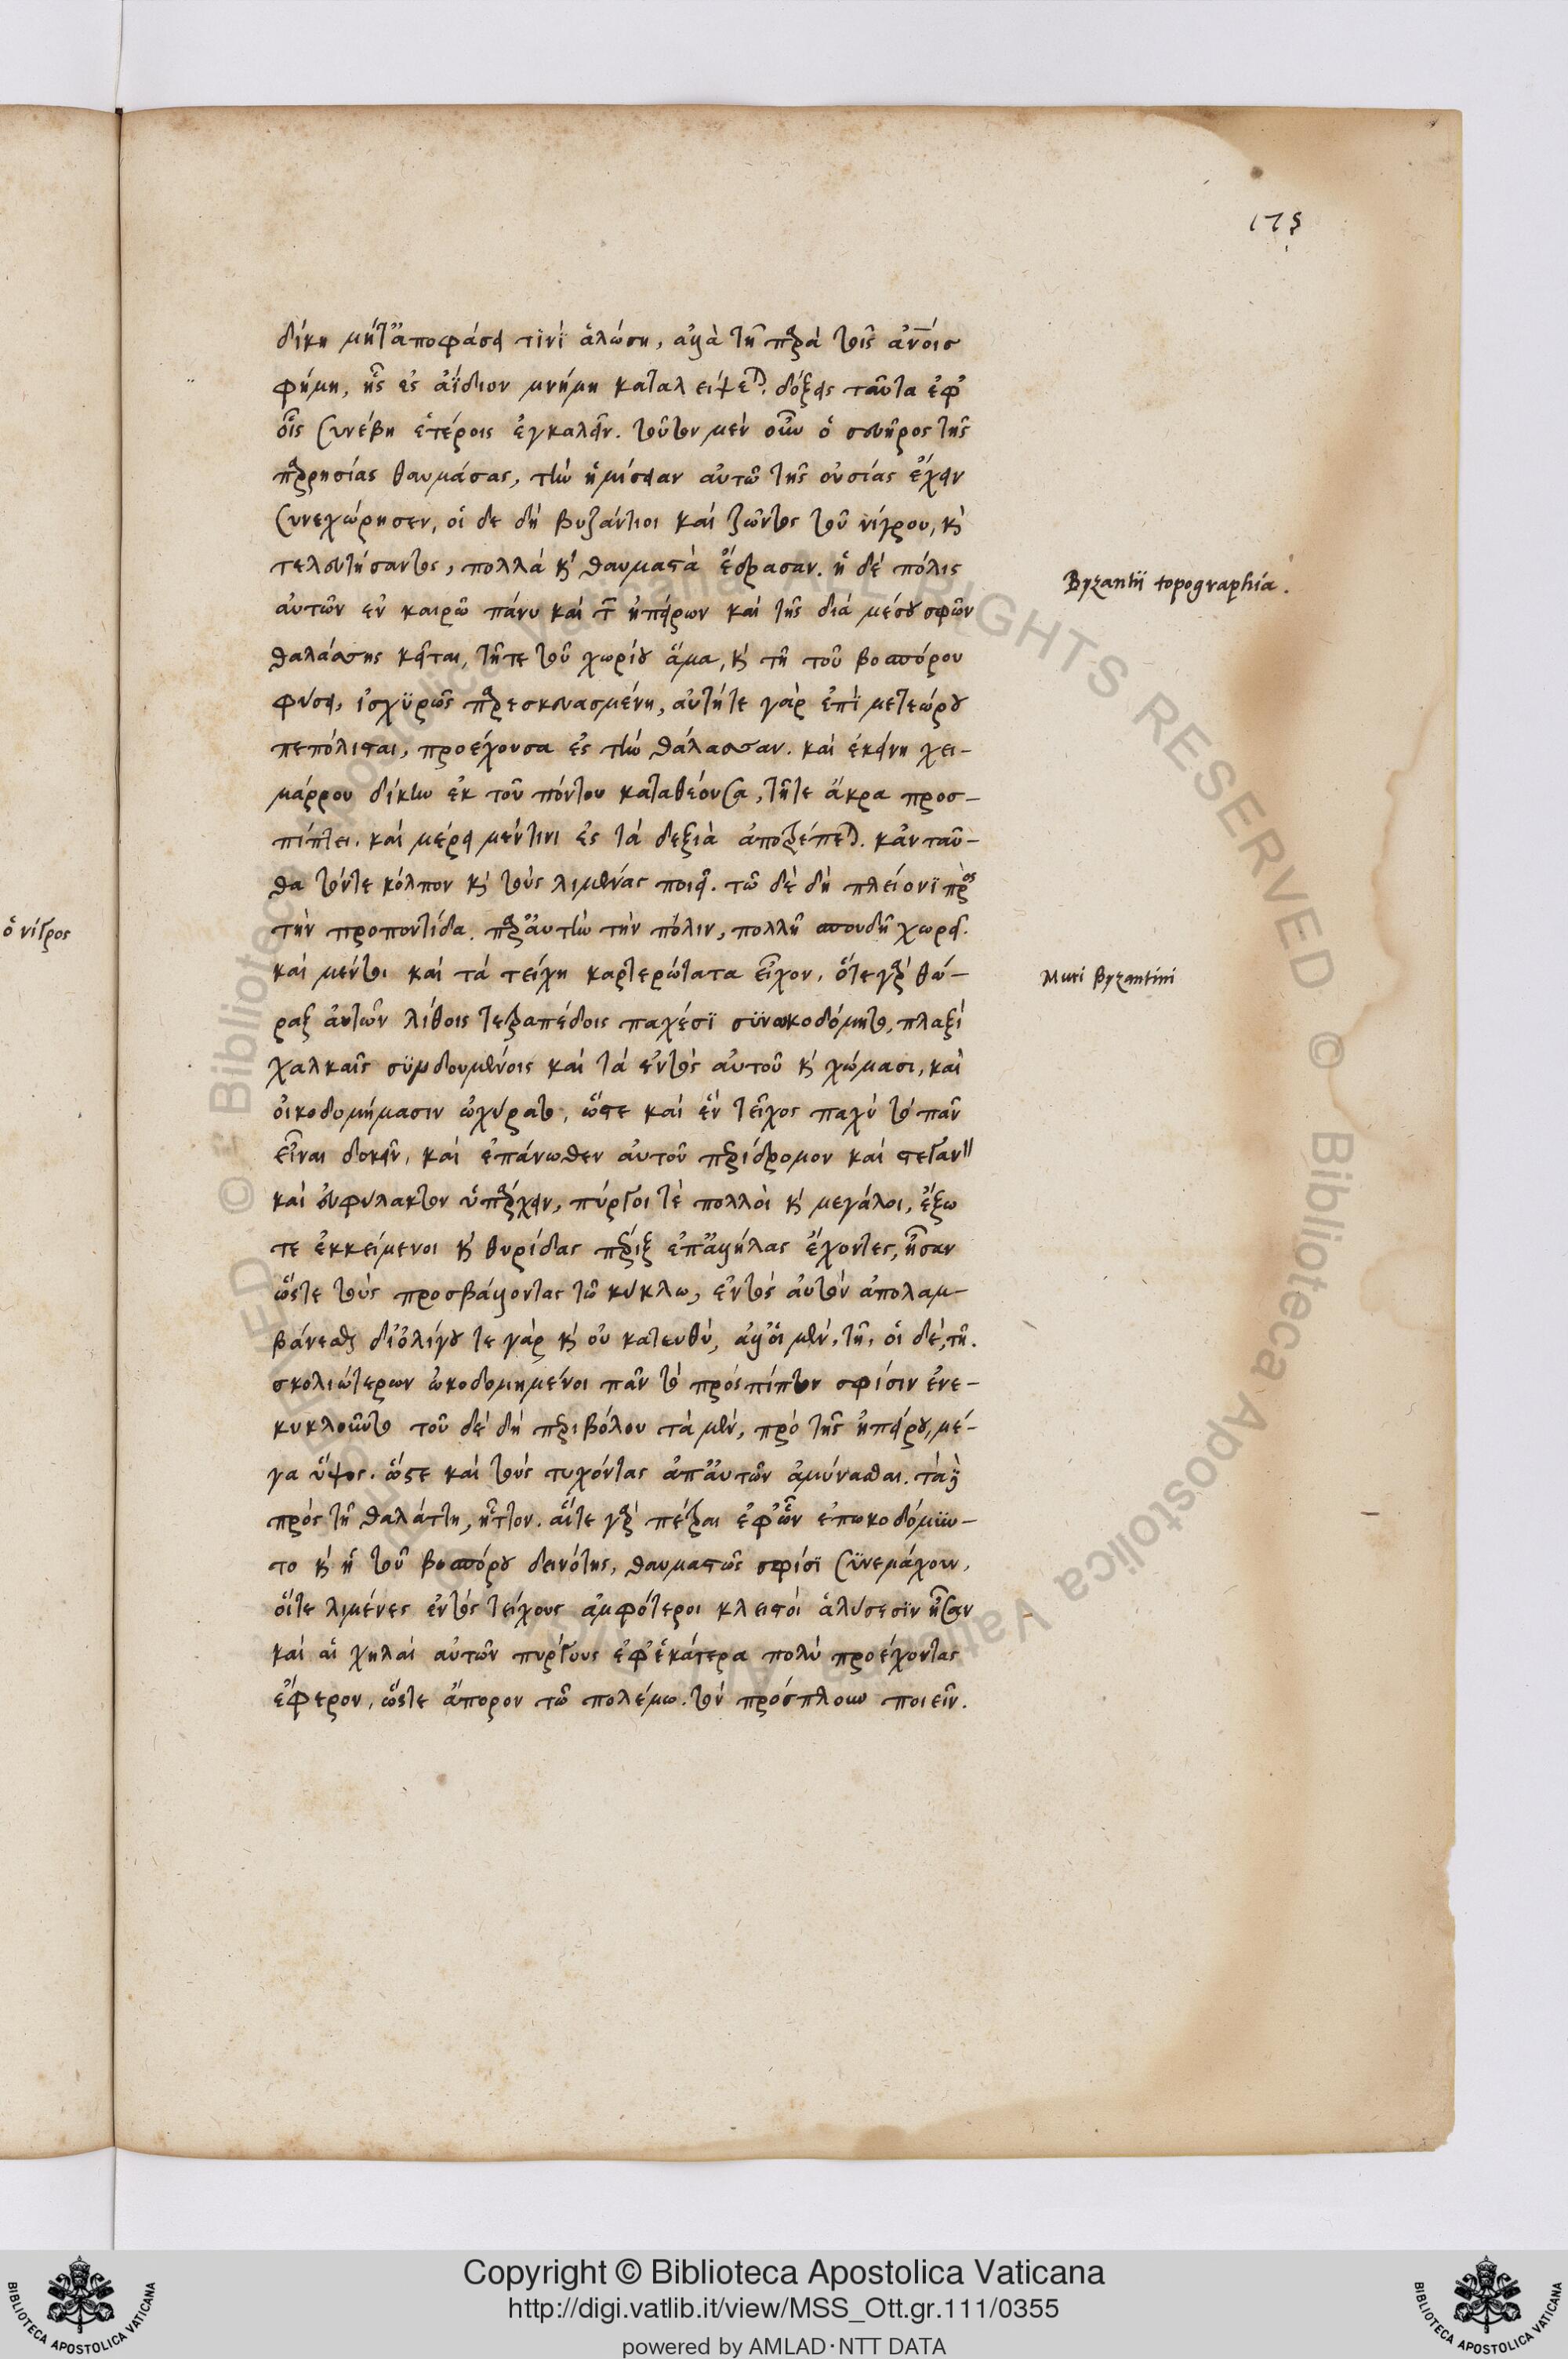 175
δίκη μήτ' ἀποφάσει τινὶ ἁλώση, ἀλλὰ τῆ παρὰ τοῖς ἀν̅οις
φήμη, ἧς ἐς ἀΐδιον μνήμη καταλείψεται δόξεις ταῦτα ἐφ'
οἷς συνέβη ἑτέροις ἐγκαλεῖν. τοῦτον μὲν οὖν ὁ σευῆρος τῆς
παρρησίας θαυμάσας, τὴν ἡμίσειαν αὐτῶ τῆς οὐσίας ἔχειν
συνεχώρησεν, οἱ δε δὴ βυζάντιοι καὶ ζῶντος τοῦ νίγρου, κ̀
τελευτήσαντος, πολλὰ κ̀ θαυμαστὰ ἔδρασαν. ἡ δὲ πόλις
αὐτῶν ἐν καιρῶ πάνυ καὶ τῶν ἠπείρων καὶ τῆς διὰ μέσου σφῶν
θαλάσσης κεῖται, τῆτε τοῦ χωρίου ἅμα, κ̀ τῆ τοῦ βοσπόρου
φύσει, ἰσχϋρῶς παρεσκευασμένη, αὐτήτε γὰρ ἐπὶ μετεώρου
πεπόλισται, προέχουσα ἐς τὴν θάλασσαν. καὶ ἐκείνη χει-
μάρρου δίκην ἐκ τοῦ πόντου καταθέουσα, τῆτε ἄκρα προσ-
πίπτει. καὶ μέρει μέν τινι ἐς τὰ δεξιὰ ἀποτρέπεται. κἀνταῦ-
θα τόντε κόλπον κ̀ τοὺς λιμένας ποιεῖ. τῶ δὲ δὴ πλείονϊ πρὸς
τὴν προποντίδα. παρ' αὐτὴν τὴν πόλιν, πολλῆ σπουδῆ χωρεῖ.
καὶ μέντοι καὶ τὰ τείχη καρτερώτατα εἶχον. ὅτε γὰρ θώ-
ραξ αὐτῶν λίθοις τετραπέδοις παχέσϊ συνωκοδόμητο, πλαξὶ
χαλκαῖς συνδουμένοις καὶ τὰ ἐντὸς αὐτοῦ κ̀ χώμασι, καὶ
οἰκοδομήμασιν ὠχύρατο, ὥστε καὶ ἓν τεῖχος παχὺ τὸ πᾶν
εἶναι δοκεῖν, καὶ ἐπάνωθεν αὐτοῦ περίδρομον καὶ στεγανὸν
καὶ εὐφύλακτον ὑπάρχειν, πύργοι τὲ πολλοὶ κ̀ μεγάλοι, ἔξω
τε ἐκκείμενοι κ̀ θυρίδας πέριξ ἐπ' ἀλλήλας ἔχοντες, ἦσαν
ὥστε τοὺς προσβάλλοντας τῶ κύκλω, ἐντὸς αὐτὸν ἀπολαμ-
βάνεσθαι δι' ὀλίγου τε γὰρ κ̀ οὐ κατευθὺ, ἀλλ' οἱ μὲν, τῆ, οἱ δὲ, τῆ.
σκολιώτερων ὠκοδομημένοι πᾶν τὸ πρόσπίπτον σφίσιν ἐνε-
κυκλοῦντο τοῦ δὲ δὴ περιβόλου τὰ μὲν, πρὸ τῆς ἠπείρου, μέ-
γα ὕψος. ὥστε καὶ τοὺς τυχόντας ἀπ' αὐτῶν ἀμύνασθαι. τὰ δὲ
πρὸς τῆ θαλάττη, ἧττον. αἵτε γὰρ πέτραι ἐφ' ὧν ἐπωκοδόμην-
το κ̀ ἡ τοῦ βοσπόρου δεινότης, θαυμαστῶς σφίσϊ συνεμάχουν,
οἵτε λιμένες ἐντὸς τείχους ἀμφότεροι κλειστοὶ ἁλύσεσϊν ἦσαν
καὶ αἱ χηλαὶ αὐτῶν πύργους ἐφ' ἑκάτερα πολὺ προέχοντας
ἔφερον, ὥστε ἄπορον τῶ πολέμω. τὸν πρόσπλουν ποιεῖν.
Byzantii topographia.
Muri Byzantini
ὁ νίγρος
Copyright © Biblioteca Apostolica Vaticana
http://digi.vatlib.it/view/MSS_Ott.gr.111/0355
powered by AMLAD·NTT DATA